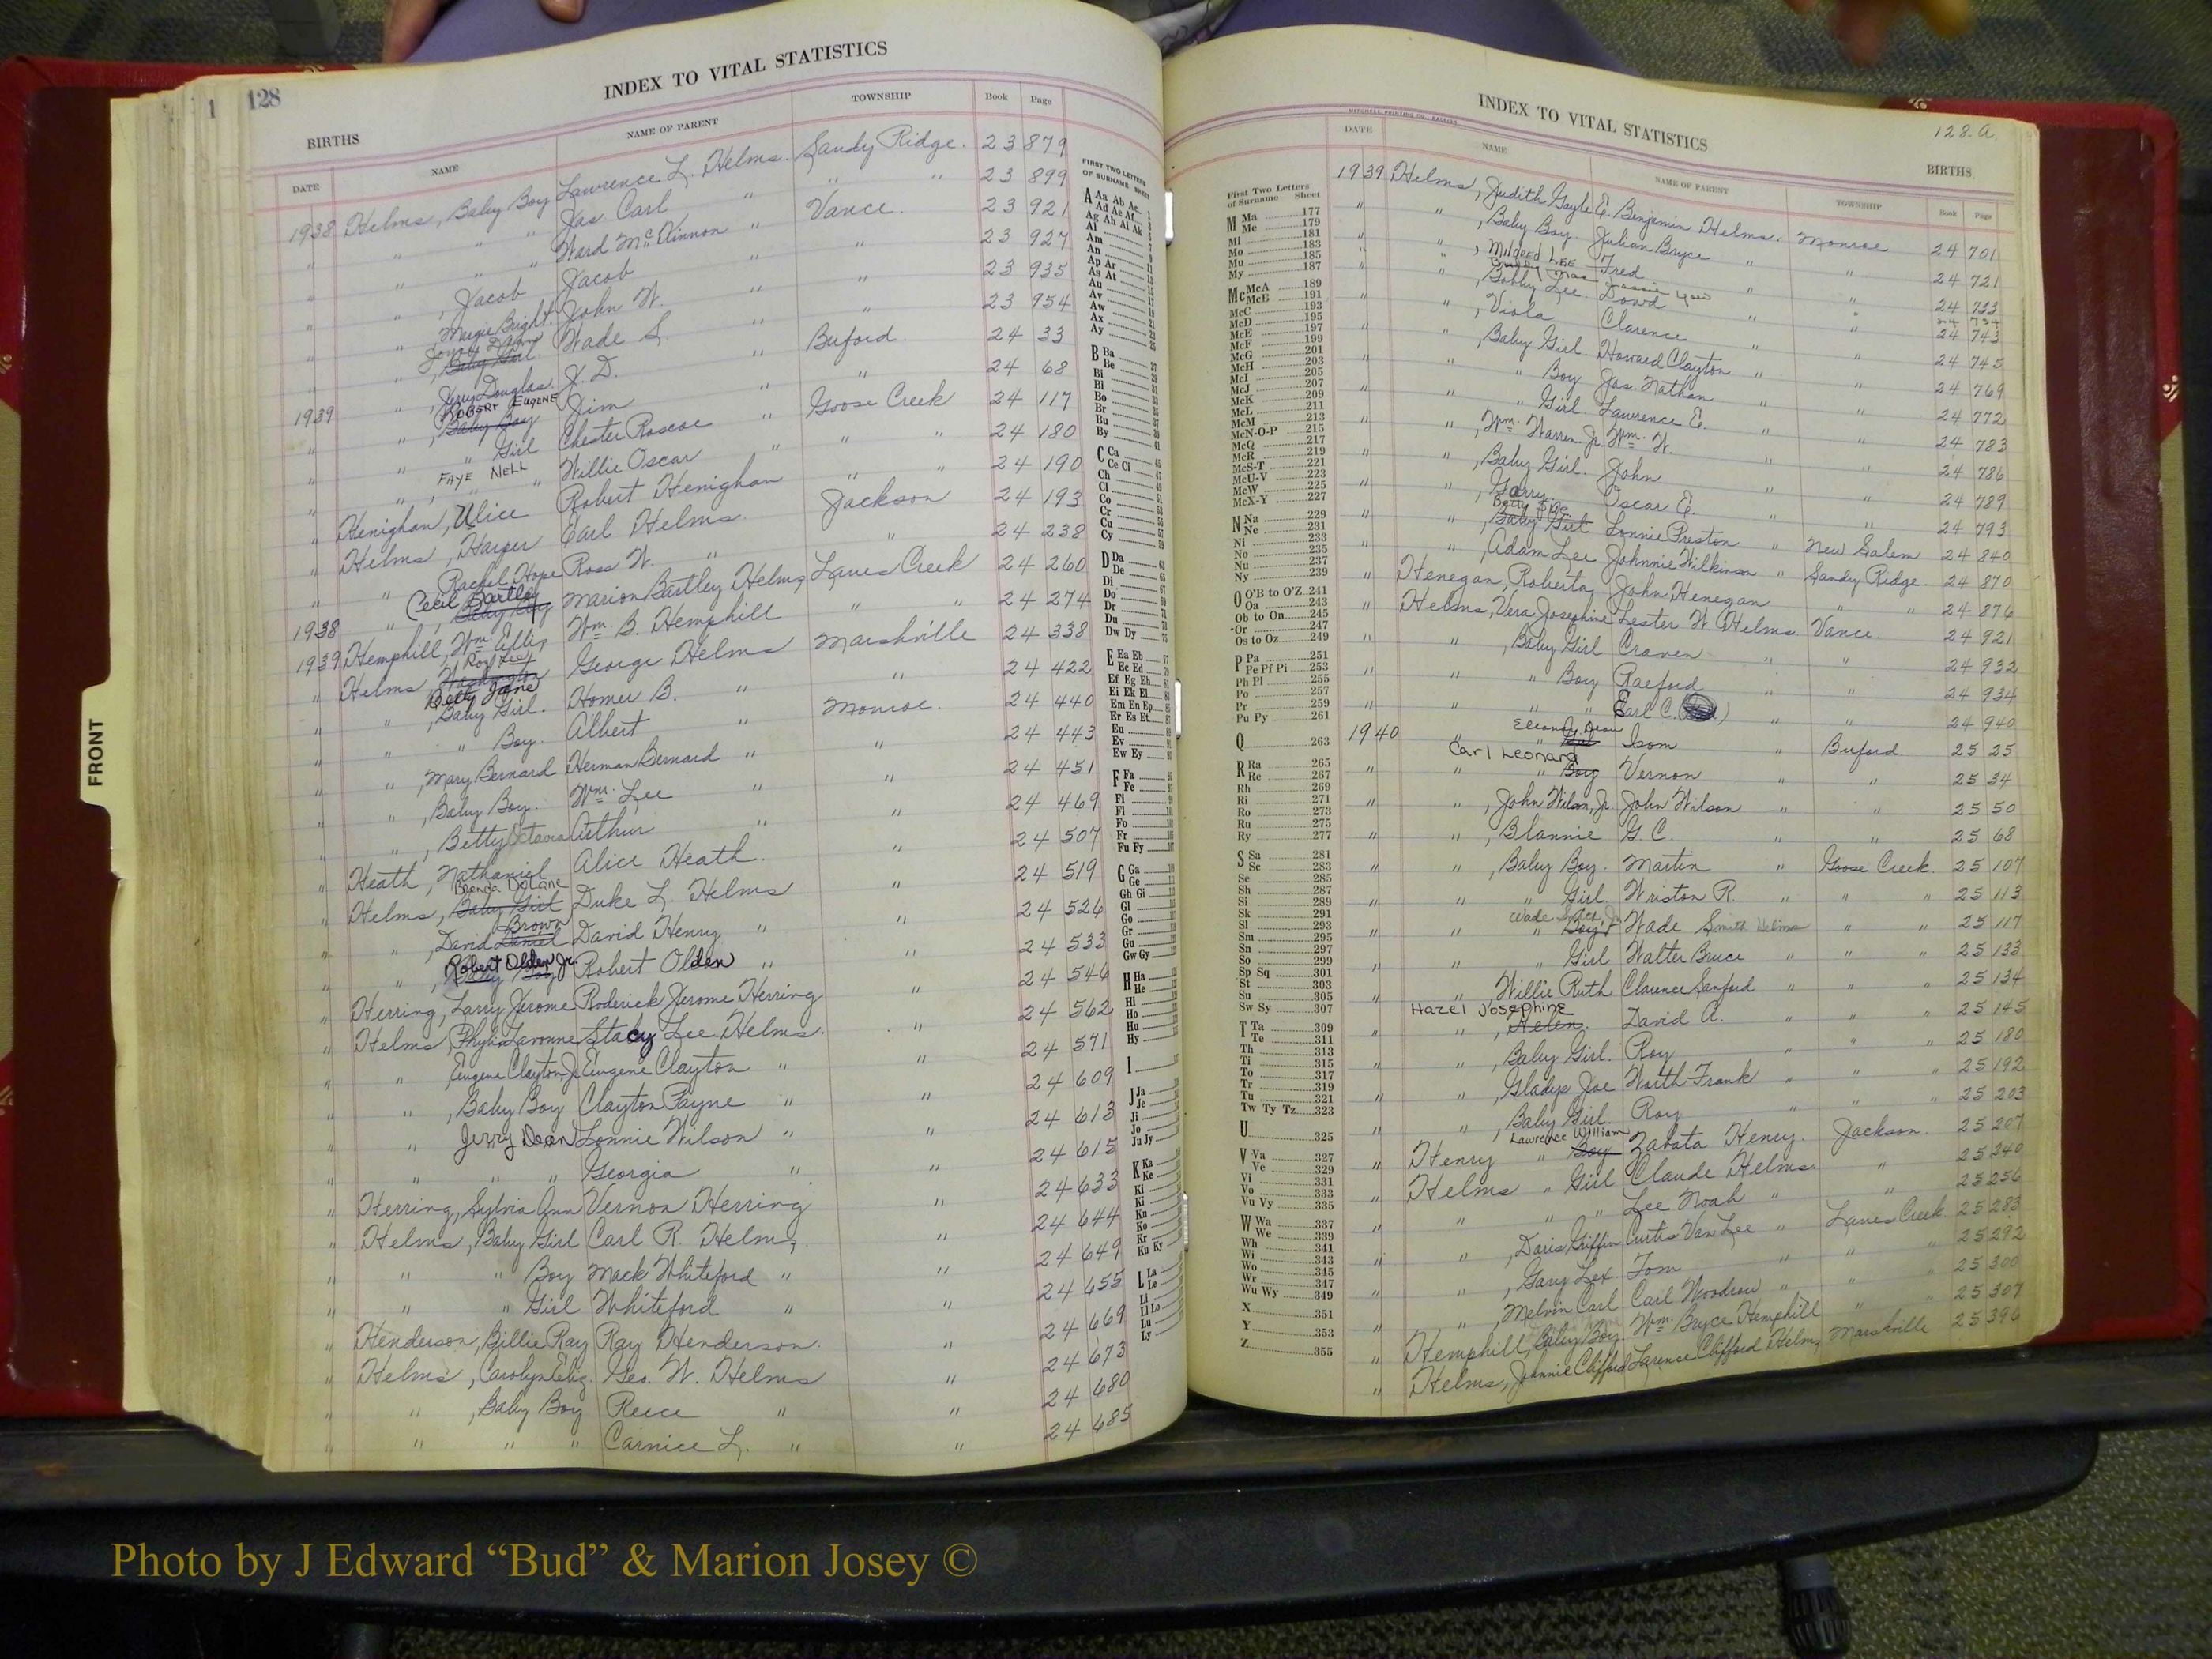 1 128
INDEX TO VITAL STATISTICS
BIRTHS
DATE NAME NAME OF PARENT TOWNSHIP Book Page
1938 Helms, Baby Boy Lawrence L. Helms. Sandy Ridge. 23 879
" " " " Jas. Carl " " " 23 899
" " " " Ward McKinnon " Vance. 23 921
" " , Jacob Jacob " " 23 927
" " , Margie Bright John W. " " 23 935
" " , Baby Girl Wade S. " " 23 954
" , Jerry Douglas. J. D. " Buford. 24 33
1939 " , ROBERT EUGENE Baby Boy Jim " " 24 68
" " " Girl Chester Roscoe " Goose Creek 24 117
" " , FAYE NELL " Willie Oscar " " " 24 180
" Henighan, Alice Robert Henighan " " 24 190
" Helms, Harper Earl Helms. Jackson 24 193
" " Rachel Hope Ross W. " " 24 238
1938 " , Cecil Bartley Baby Boy Marion Bartley Helms Lanes Creek 24 260
1939 Hemphill, Wm. Ellis Wm. B. Hemphill " " 24 274
" Helms Roy Lee Washington George Helms Marshville 24 338
" " , Betty Jane Baby Girl. Homer B. " " 24 422
" " " Boy. Albert " Monroe. 24 440
" " , Mary Bernard Herman Bernard " " 24 443
" " , Baby Boy. Wm. Lee " " 24 451
" " , Betty Octavia Arthur " " 24 469
" Heath, Nathaniel Alice Heath. " 24 507
" Helms, Brenda Baby Girl Duke L. Helms " 24 519
" " , David Brown Daniel David Henry " " 24 526
" " , Robert Olden Jr. Baby Boy Robert Olden " " 24 533
" Herring, Larry Jerome Roderick Jerome Herring " 24 546
" Helms, Phylis Lavonne Stacy Lee Helms. " 24 562
" " , Eugene Clayton Jr. Eugene Clayton " " 24 571
" " , Baby Boy Clayton Payne " " 24 609
" " Jerry Dean Lonnie Wilson " " 24 613
" " " " Georgia " " 24 615
" Herring, Sylvia Ann Vernon Herring " 24 633
" Helms, Baby Girl Carl R. Helms, " 24 644
" " " Boy Mack Whiteford " " 24 649
" " " Girl Whiteford " " 24 655
" Henderson, Billie Ray Ray Henderson. " 24 669
" Helms, Carolyn Eliz. Geo. W. Helms " 24 673
" " , Baby Boy Reece " " 24 680
" " " " Carnice L. " " 24 685
FIRST TWO LETTERS
OF SURNAME SHEET
A Aa Ab Ac
Ad Ae Af
Ag Ah Ai Ak
Al
Am
An
Ap Ar
As At
Au
Av
Aw
Ax
Ay
B Ba
Be
Bi
Bl
Bo
Br
Bu
By
C Ca
Ce Ci
Ch
Cl
Co
Cr
Cu
Cy
D Da
De
Di
Do
Dr
Du
Dw Dy
E Ea Eb
Ec Ed
Ef Eg Eh
Ei Ek El
Em En Ep
Er Es Et
Eu
Ev
Ew Ey
F Fa
Fe
Fi
Fl
Fo
Fr
Fu Fy
G Ga
Ge
Gh Gi
Gl
Go
Gr
Gu
Gw Gy
H Ha
He
Hi
Ho
Hu
Hy
I
J Ja
Je
Ji
Jo
Ju Jy
K Ka
Ke
Ki
Kl
Kn
Ko
Kr
Ku Ky
L La
Le
Li
Ll Lo
Lu
Ly
FRONT
INDEX TO VITAL STATISTICS
128.A.
MITCHELL PRINTING CO., RALEIGH
BIRTHS
DATE NAME NAME OF PARENT TOWNSHIP Book Page
First Two Letters
of Surname Sheet
M Ma 177
Me 179
Mi 181
Mo 183
Mu 185
My 187
Mc McA 189
McB 191
McC 193
McD 195
McE 197
McF 199
McG 201
McH 203
McI 205
McJ 207
McK 209
McL 211
McM 213
McN-O-P 215
McQ 217
McR 219
McS-T 221
McU-V 223
McW 225
McX-Y 227
N Na 229
Ne 231
Ni 233
No 235
Nu 237
Ny 239
O O'B to O'Z 241
Oa 243
Ob to On 245
Or 247
Os to Oz 249
P Pa 251
Pe Pf Pi 253
Ph Pl 255
Po 257
Pr 259
Pu Py 261
Q 263
R Ra 265
Re 267
Rh 269
Ri 271
Ro 273
Ru 275
Ry 277
S Sa 281
Sc 283
Se 285
Sh 287
Si 289
Sk 291
Sl 293
Sm 295
Sn 297
So 299
Sp Sq 301
St 303
Su 305
Sw Sy 307
T Ta 309
Te 311
Th 313
Ti 315
To 317
Tr 319
Tu 321
Tw Ty Tz 323
U 325
V Va 327
Ve 329
Vi 331
Vo 333
Vu Vy 335
W Wa 337
We 339
Wh 341
Wi 343
Wo 345
Wr 347
Wu Wy 349
X 351
Y 353
Z 355
1939 Helms, Judith Gayle E. Benjamin Helms. Monroe 24 701
" " , Baby Boy. Julian Bryce " " 24 721
" " , MILDRED LEE Fred " " 24 733
" " , Bobby Lee. Dowd " " 24 743
" " , Viola Clarence " " 24 745
" " , Baby Girl. Howard Clayton " " 24 769
" " " Boy Jas. Nathan " " 24 772
" " " Girl. Lawrence E. " " 24 783
" " , Wm. Warren Jr. Wm. W. " " 24 786
" " , Baby Girl. John " " 24 789
" " , Garry Oscar E. " " 24 793
" " , Betty Baby Girl Lonnie Preston " New Salem 24 840
" " , Adam Lee Johnnie Wilkinson " Sandy Ridge. 24 870
" Henegan, Roberta, John Henegan " " 24 876
" Helms, Vera Josephine Lester W. Helms. Vance. 24 921
" " , Baby Girl Craven " " 24 932
" " " Boy Raeford " " 24 934
" " " " Earl C. " " 24 940
1940 " " Dean Girl Isom " Buford. 25 25
" Carl Leonard " " Boy Vernon " " 25 34
" " , John Wilson, Jr. John Wilson " " 25 50
" " , Blannie G. C. " " 25 68
" " , Baby Boy. Martin " Goose Creek. 25 107
" " " Girl Wriston R. " " " 25 113
" " Wade Boy Wade Smith Helms " " 25 117
" " " Girl Walter Bruce " " " 25 133
" " , Willie Ruth Clarence Sanford " " " 25 134
" Hazel Josephine " , Helen. David A. " " " 25 145
" " , Baby Girl. Roy " " " 25 180
" " , Gladys Joe Worth Frank " " " 25 192
" " , Baby Girl. Roy " " " 25 203
" Henry " Lawrence William Boy Zabata Henry. Jackson. 25 207
" Helms " Girl Claude Helms. " 25 240
" " " " Lee Noah " " 25 256
" " , Doris Griffin Curtis Van Lee " Lanes Creek 25 283
" " , Gary Lex. Tom " " " 25 292
" " , Melvin Carl Carl Woodrow " " " 25 300
" Hemphill, Baby Boy. Wm. Bryce Hemphill " " 25 307
" Helms, Johnnie Clifford Larence Clifford Helms Marshville 25 396
Photo by J Edward “Bud” & Marion Josey ©